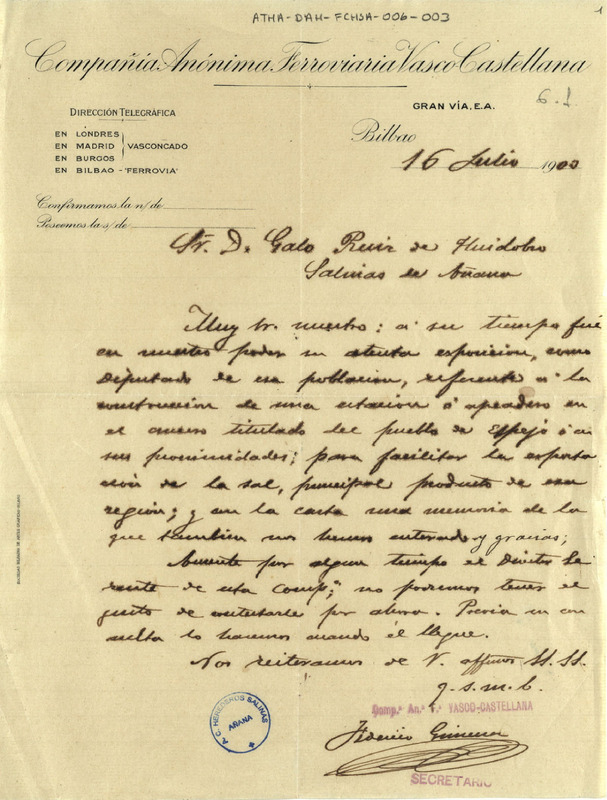 ATHA-DAH-FCHSA-006-003
1
Compañía Anónima Ferroviaria Vasco Castellana
DIRECCIÓN TELEGRÁFICA
GRAN VÍA, E.A.
6.1
EN LÓNDRES
EN MADRID VASCONGADO
EN BURGOS
EN BILBAO - "FERROVIA"
Bilbao
16 Julio 1900
Confirmamos la n/ de
Poseemos la s/ de
Sr. D. Galo Ruiz de Huidobro
Salinas de Añana
Muy Sr. nuestro: a su tiempo fué
en nuestro poder su atenta exposicion, como
Diputado de esa poblacion, referente a la
construccion de una estacion ó apeadero en
el titulado del pueblo de Espejo ó a
sus proximidades; para facilitar la exporta
cion de la sal, principal producto de esa
region; y en la carta una memoria de la
que tambien nos hemos enterado y gracias;
Ausente por algun tiempo el Director Ge
rente de esta Comp.ª; no podemos tener el
gusto de contestarle por ahora. Previa su con
sulta lo haremos cuando él llegue.
Nos reiteramos de V. affmos SS. SS.
q. s. m. b.
Comp.ª An.ª F.ª VASCO-CASTELLANA
Federico Gimenez
SECRETARIO
A. C. HEREDEROS SALINAS
AÑANA